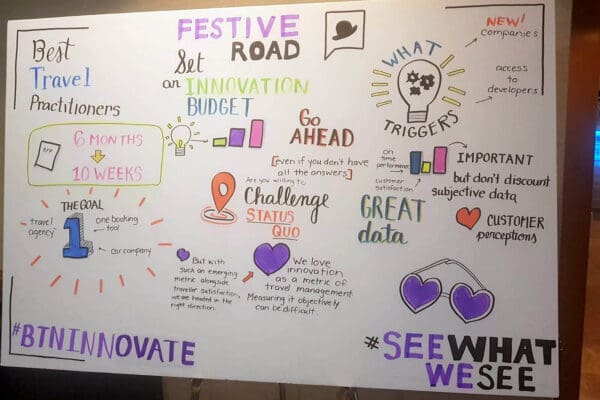 FESTIVE
ROAD
Best
Travel
Practitioners
Set
an INNOVATION
BUDGET
WHAT
TRIGGERS
NEW!
companies
access
to
developers
RFP
6 MONTHS
10 WEEKS
Go
AHEAD
[even if you don't have
all the answers]
on
time
performance
customer
satisfaction
IMPORTANT
but don't discount
subjective data
THE GOAL
travel
agency
1
one booking
tool
car company
Are you willing to
Challenge
STATUS
QUO
GREAT
data
CUSTOMER
perceptions
But with
such an emerging
metric alongside
traveller satisfaction,
we are headed in the
right direction.
We love
innovation
as a metric of
travel management
Measuring it objectively
can be difficult.
#BTNINNOVATE
#SEEWHAT
WESEE